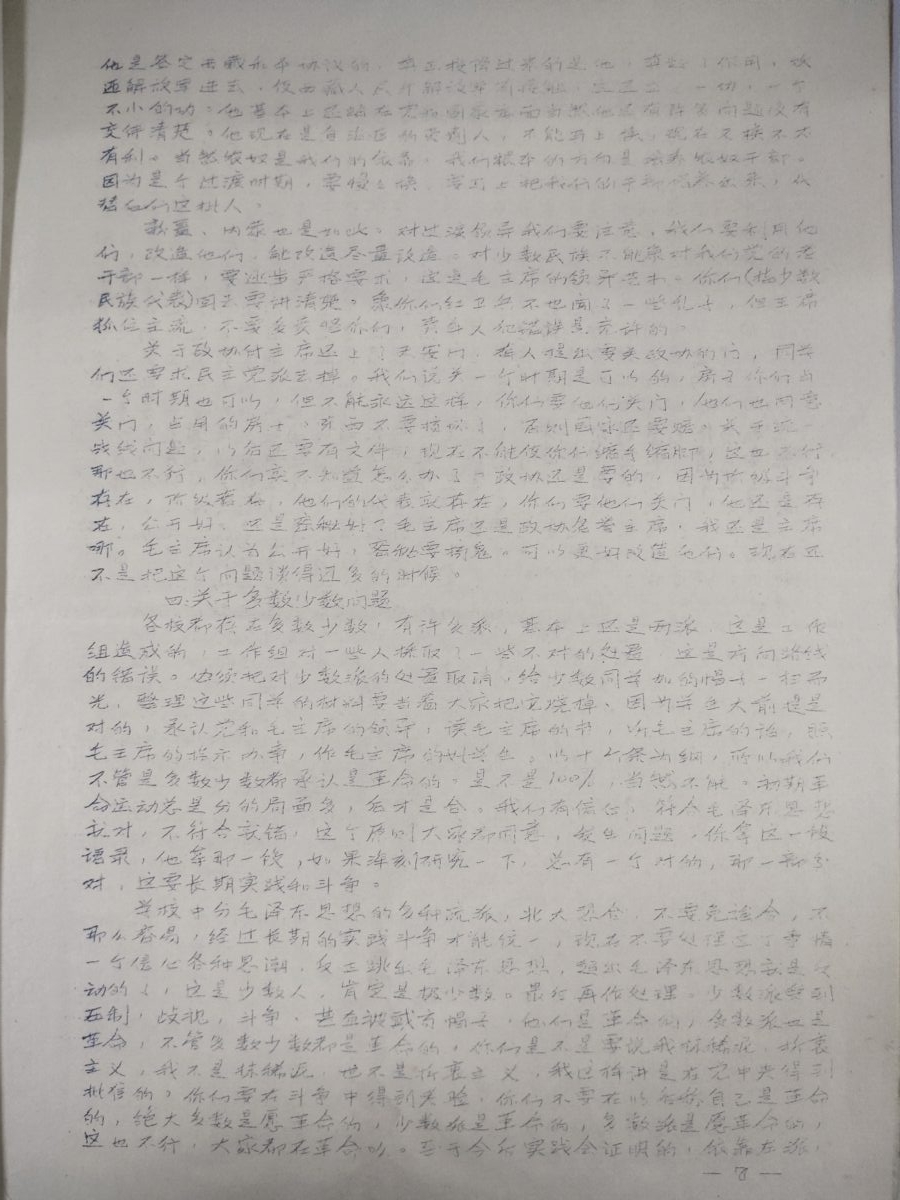 他是签定西藏和平协议的,
进解放军进去,
不小的功。他基本上还站在党和国家方面当然他还有许多问题没有
交待清楚。他现在是自治区的负责人,不能马上换,现在不换不太
有利。当然农奴是我们的依靠,我们根本的方向是培养农奴干部。
因为是个过渡时期,要慢慢换,要马上把我们的干部培养出来,代
替他们这批人。
新疆、内蒙也是如此。对过渡领导我们要注意,我们要利用他
们,改造他们,能改造尽量改造。对少数民族不能象对我们党的老
干部一样,要逐步严格要求,这是毛主席的领导艺术。你们(指少数
民族代表)回去要讲清楚。象你们红卫兵不也闹了一些乱子,但主席
抓住主流,不要多责怪你们,青年人犯错误是允许的。
关于政协付主席还上了天安门,有人提出要关政协的门,同学
们还要求民主党派去掉。我们说关一个时期是可以的,房子你们占
一个时期也可以,但不能永远这样,你们要他们关门,他们也同意
关门,占用的房子、东西不要搞坏了,否则国家还要赔。关于统
战线问题,以后还要有文件,现在不能使你们缩手缩脚,这也不行
那也不行,你们就不知道怎么办了。政协还是要的,因为阶级斗争
存在,阶级存在,他们的代表就存在,你们要他们关门,他还是存
在,公开好、还是秘密好?毛主席还是政协名誉主席,我还是主席
哪。毛主席认为公开好,秘密要搞鬼。可以更好改造他们。现在还
不是把这个问题谈得过多的时候。
四.关于多数少数问题
各校都存在多数少数,有许多派,基本上还是两派,这是工作
组造成的,工作组对一些人採取了一些不对的处置,这是方向路线
的错误。必须把对少数派的处置取消,给少数同学加的帽子一扫而
光,整理这些同学的材料要当着大家把它烧掉。因为学生大前提是
对的,承认党和毛主席的领导,读毛主席的书,听毛主席的话,照
毛主席的指示办事,作毛主席的好学生。以十六条为纲,所以我们
不管是多数少数都承认是革命的。是不是100%,当然不能。初期革
命运动总是分的局面多,后才是合。我们有信心,符合毛泽东思想
就对,不符合就错,这个原则大家都同意,发生问题,你拿这一段
语录,他拿那一段,如果深刻研究一下,总有一个对的,那一部分
对,这要长期实践和斗争。
学校中分毛泽东思想的多种流派,北大想合,不要先谈合,不
那么容易,经过长期的实践斗争才能统一,现在不要处理这个事情,
一个信心各种思潮,反正跳出毛泽东思想,超出毛泽东思想就是反
动的了,这是少数人,肯定是极少数。最后再作处理。少数派受到
压制,歧视,斗争,甚至被戴有帽子,他们是革命的,多数派也是
革命,不管多数少数都是革命的,你们是不是要说我抹稀泥,折衷
主义,我不是抹稀泥,也不是折衷主义,我这样讲是在党中央得到
批准的,你们要在斗争中得到考验。你们不要在以后称自己是革命
的,绝大多数是愿革命的,少数派是革命的,多数派是愿革命的,
这也不行,大家都在革命的。至于今后实践会证明的,依靠左派,
—8—